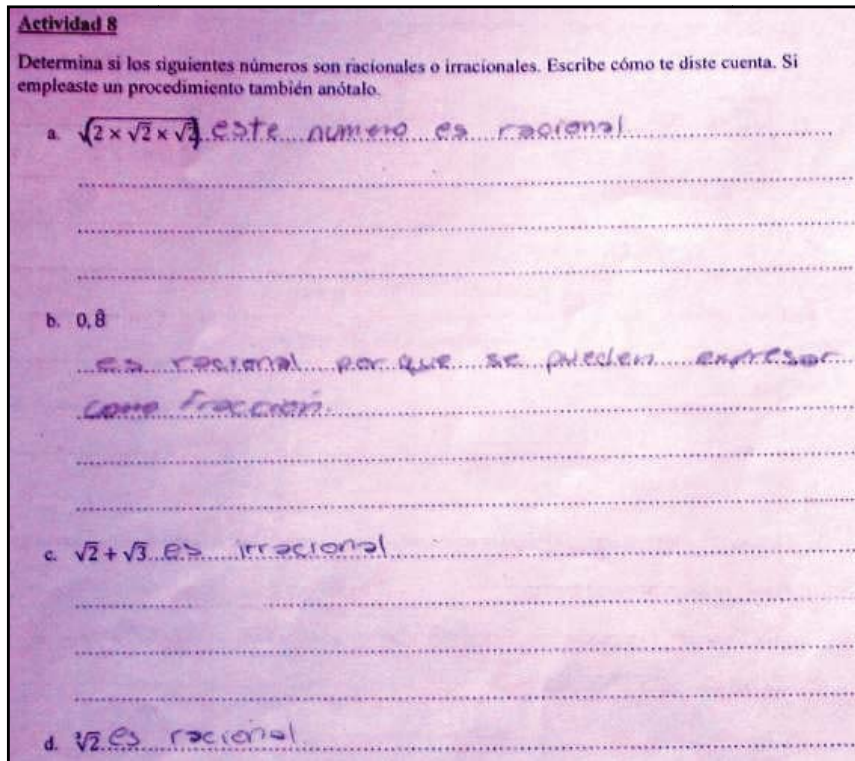 Actividad 8
Determina si los siguientes números son racionales o irracionales. Escribe cómo te diste cuenta. Si
empleaste un procedimiento también anótalo.
a. √(2 × √2 × √2) este numero es racional
b. 0,8̂
es racional por que se pueden expresar
como fracción.
c. √2 + √3 es irracional
d. ∛2 es racional